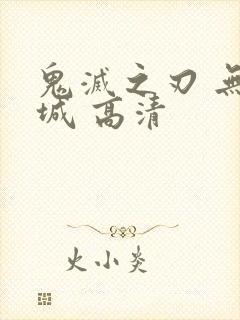 鬼滅之刃 無
城 高清
火小炎